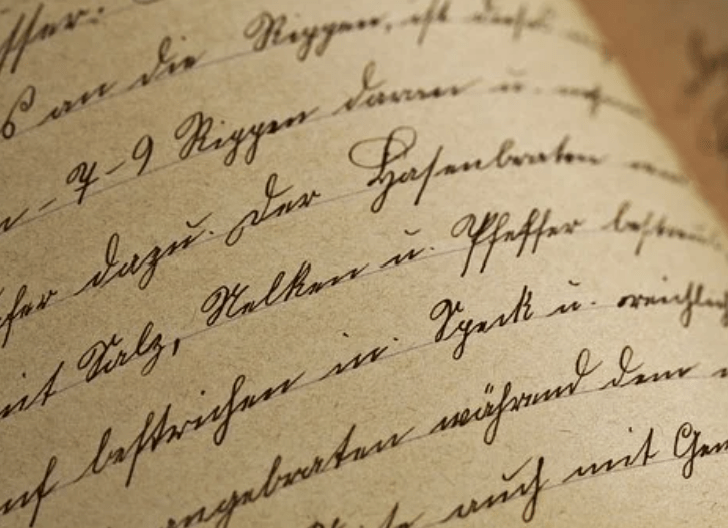 sser:
s an die Rippen, ist dieses
n - 7 - 9 Rippen daran u.
fer dazu. Der Hasenbraten
mit Salz, Nelken u. Pfeffer bestreu
uf bestrichen in Speck u. reichlich
angebraten während dem
auch mit Gem